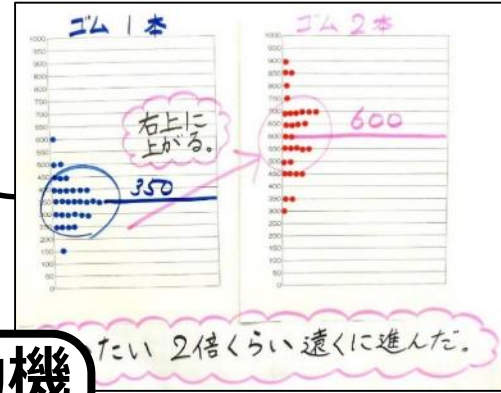 ゴム1本
ゴム2本
1000
950
900
850
800
750
700
650
600
550
500
450
400
350
300
250
200
150
100
50
0
右上に
上がる。
350
1000
950
900
850
800
750
700
650
600
550
500
450
400
350
300
250
200
150
100
50
0
600
たい 2倍くらい遠くに進んだ。
機